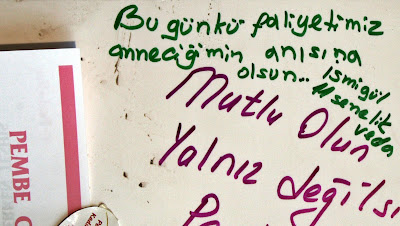 Bu günkü faliyetimiz
anneciğimin anısına
olsun.. ismigül
11 senelik
veda
Mutlu Olun
Yalnız değilsi
PEMBE